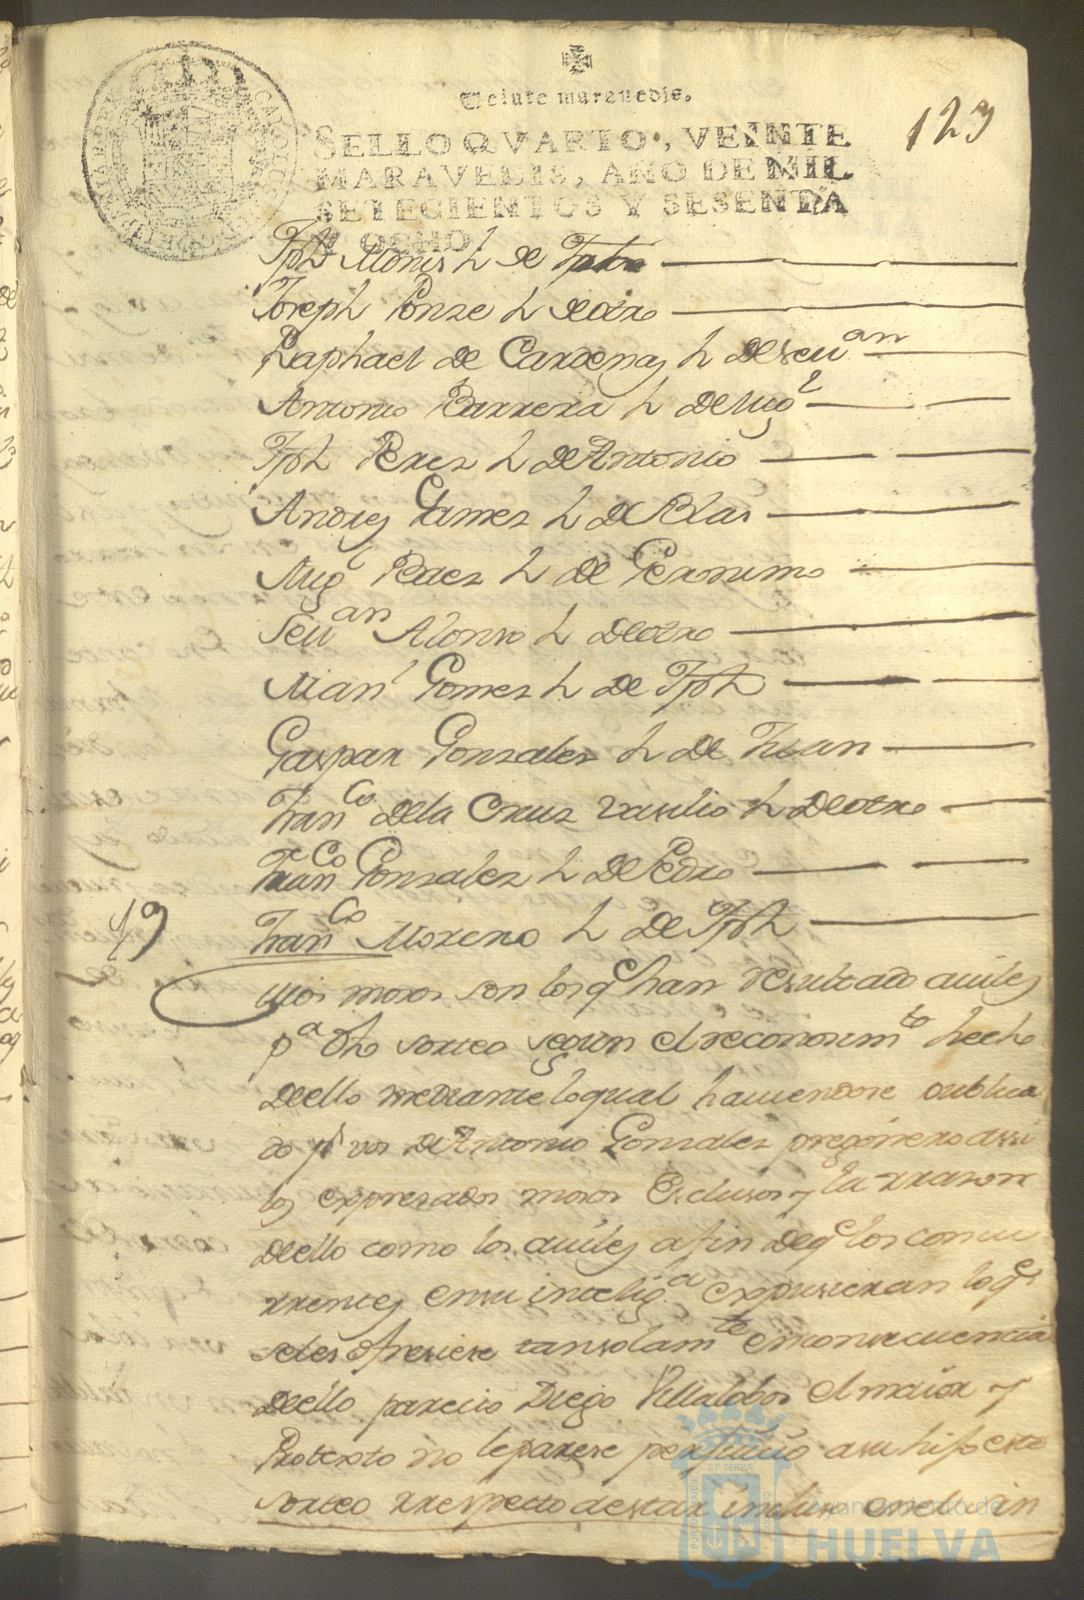 Veinte maravedis.
SELLO QVARTO, VEINTE
MARAVEDIS, AÑO DE MIL
SETECIENTOS Y SESENTA
Y OCHO
129
Jph Monis h de
Joseph Ponze h de otro
Raphael de Cardenas h de Seu an
Antonio Barrera h de Mig l
Jph Perez h de Antonio
Andres Gamez h de Blas
Mig l Baez h de Geronimo
Seu an Alonso h de otro
Man l Gomez h de Jph
Gaspar Gonzalez h de Juan
Fran co de la Cruz vasilio h de otro
Fran co Gonzalez h de Pedro
19 Fran co Moreno h de Jph
mozos son los q e han resultado auiles
p a dho sorteo segun el reconosim to hecho
de ello mediante lo qual hauiendose publica
do p r vos de Antonio Gonzalez pregonero assi
los expresados mozos Esclusos y la rrazon
de ello como los auiles a fin de q e los concu
rrentes en su intelig a expusieran lo q e
se les ofresiese tan solam te en consecuencia
de ello parecio Diego Villalobos el maior y
Protexto no le parase perjuicio a su hijo este
sorteo rrespecto a estar incluso en el sin
Ayuntamiento de
HUELVA